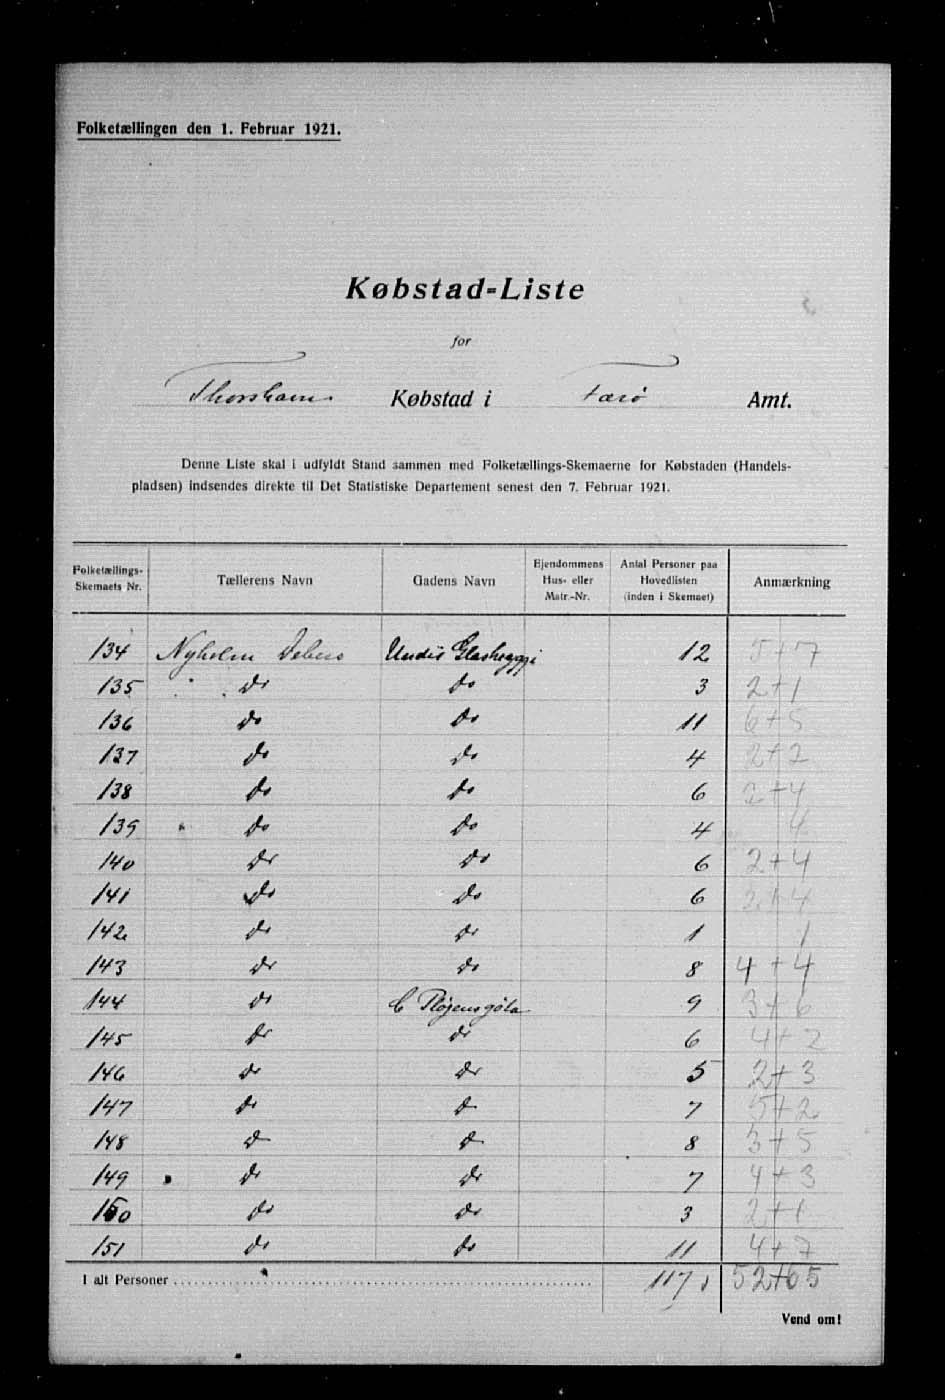 Folketællingen den 1. Februar 1921.
Købstad-Liste
for
Thorshavn Købstad i Færø Amt.
Denne Liste skal i udfyldt Stand sammen med Folketællings-Skemaerne for Købstaden (Handels-
pladsen) indsendes direkte til Det Statistiske Departement senest den 7. Februar 1921.
Folketællings-Skemaets Nr. Tællerens Navn Gadens Navn Ejendommens Hus- eller Matr.-Nr. Antal Personer paa Hovedlisten (inden i Skemaet) Anmærkning
134 Nyholm Debes Undir Glasheyggi 12 5+7
135 do do 3 2+1
136 do do 11 6+5
137 do do 4 2+2
138 do do 6 2+4
139 do do 4 4
140 do do 6 2+4
141 do do 6 2+4
142 do do 1 1
143 do do 8 4+4
144 do C Pløjensgøta 9 3+6
145 do do 6 4+2
146 do do 5 2+3
147 do do 7 5+2
148 do do 8 3+5
149 do do 7 4+3
150 do do 3 2+1
151 do do 11 4+7
I alt Personer 117 52+65
Vend om!